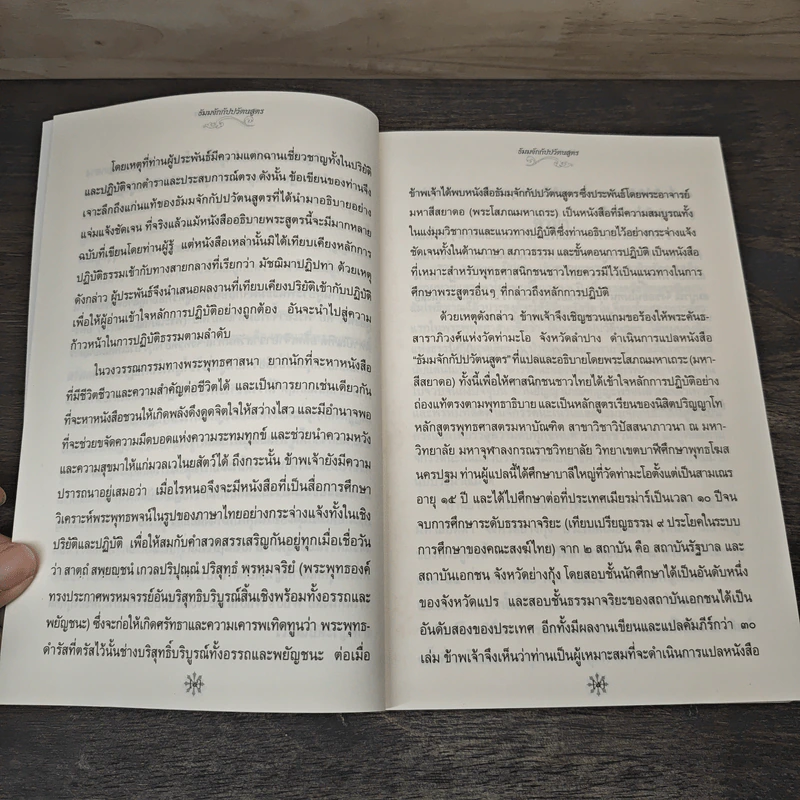 ธัมมจักกัปปวัตนสูตร
โดยเหตุที่ท่านผู้ประพันธ์มีความแตกฉานเชี่ยวชาญทั้งในปริยัติ
และปฏิบัติจากตำราและประสบการณ์ตรง ดังนั้น ข้อเขียนของท่านจึง
เจาะลึกถึงแก่นแท้ของธัมมจักกัปปวัตนสูตรที่ได้นำมาอธิบายอย่าง
แจ่มแจ้งชัดเจน ที่จริงแล้วแม้หนังสืออธิบายพระสูตรนี้จะมีมากหลาย
ฉบับที่เขียนโดยท่านผู้รู้ แต่หนังสือเหล่านั้นมิได้เทียบเคียงหลักการ
ปฏิบัติธรรมเข้ากับทางสายกลางที่เรียกว่า มัชฌิมาปฏิปทา ด้วยเหตุ
ดังกล่าว ผู้ประพันธ์จึงนำเสนอผลงานที่เทียบเคียงปริยัติเข้ากับปฏิบัติ
เพื่อให้ผู้อ่านเข้าใจหลักการปฏิบัติอย่างถูกต้อง อันจะนำไปสู่ความ
ก้าวหน้าในการปฏิบัติธรรมตามลำดับ
ในวงวรรณกรรมทางพระพุทธศาสนา ยากนักที่จะหาหนังสือ
ที่มีชีวิตชีวาและความสำคัญต่อชีวิตได้ และเป็นการยากเช่นเดียวกัน
ที่จะหาหนังสือชวนให้เกิดพลังดึงดูดจิตใจให้สว่างไสว และมีอำนาจพอ
ที่จะช่วยขจัดความมืดบอดแห่งความระทมทุกข์ และช่วยนำความหวัง
และความสุขมาให้แก่มวลเวไนยสัตว์ได้ ถึงกระนั้น ข้าพเจ้ายังมีความ
ปรารถนาอยู่เสมอว่า เมื่อไรหนอจึงจะมีหนังสือที่เป็นสื่อการศึกษา
วิเคราะห์พระพุทธพจน์ในรูปของภาษาไทยอย่างกระจ่างแจ้งทั้งในเชิง
ปริยัติและปฏิบัติ เพื่อให้สมกับคำสวดสรรเสริญกันอยู่ทุกเมื่อเชื่อวัน
ว่า สาตฺถํ สพฺยญฺชนํ เกวลปริปุณฺณํ ปริสุทฺธํ พฺรหฺมจริยํ (พระพุทธองค์
ทรงประกาศพรหมจรรย์อันบริสุทธิบริบูรณ์สิ้นเชิงพร้อมทั้งอรรถและ
พยัญชนะ) ซึ่งจะก่อให้เกิดศรัทธาและความเคารพเทิดทูนว่า พระพุทธ-
ดำรัสที่ตรัสไว้นั้นช่างบริสุทธิ์บริบูรณ์ทั้งอรรถและพยัญชนะ ต่อเมื่อ
ธัมมจักกัปปวัตนสูตร
ข้าพเจ้าได้พบหนังสือธัมมจักกัปปวัตนสูตรซึ่งประพันธ์โดยพระอาจารย์
มหาสีสยาดอ (พระโสภณมหาเถระ) เป็นหนังสือที่มีความสมบูรณ์ทั้ง
ในแง่มุมวิชาการและแนวทางปฏิบัติซึ่งท่านอธิบายไว้อย่างกระจ่างแจ้ง
ชัดเจนทั้งในด้านภาษา สภาวธรรม และขั้นตอนการปฏิบัติ เป็นหนังสือ
ที่เหมาะสำหรับพุทธศาสนิกชนชาวไทยควรมีไว้เป็นแนวทางในการ
ศึกษาพระสูตรอื่นๆ ที่กล่าวถึงหลักการปฏิบัติ
ด้วยเหตุดังกล่าว ข้าพเจ้าจึงเชิญชวนแกมขอร้องให้พระคันธ-
สาราภิวงศ์แห่งวัดท่ามะโอ จังหวัดลำปาง ดำเนินการแปลหนังสือ
“ธัมมจักกัปปวัตนสูตร” ที่แปลและอธิบายโดยพระโสภณมหาเถระ (มหา-
สีสยาดอ) ทั้งนี้เพื่อให้ศาสนิกชนชาวไทยได้เข้าใจหลักการปฏิบัติอย่าง
ถ่องแท้ตรงตามพุทธาธิบาย และเป็นหลักสูตรเรียนของนิสิตปริญญาโท
หลักสูตรพุทธศาสตรมหาบัณฑิต สาขาวิชาวิปัสสนาภาวนา ณ มหา-
วิทยาลัย มหาจุฬาลงกรณราชวิทยาลัย วิทยาเขตบาฬีศึกษาพุทธโฆส
นครปฐม ท่านผู้แปลนี้ได้ศึกษาบาลีใหญ่ที่วัดท่ามะโอตั้งแต่เป็นสามเณร
อายุ ๑๕ ปี และได้ไปศึกษาต่อที่ประเทศเมียรม่าร์เป็นเวลา ๑๐ ปีจน
จบการศึกษาระดับธรรมาจริยะ (เทียบเปรียญธรรม ๙ ประโยคในระบบ
การศึกษาของคณะสงฆ์ไทย) จาก ๒ สถาบัน คือ สถาบันรัฐบาล และ
สถาบันเอกชน จังหวัดย่างกุ้ง โดยสอบชั้นนักศึกษาได้เป็นอันดับหนึ่ง
ของจังหวัดแปร และสอบชั้นธรรมาจริยะของสถาบันเอกชนได้เป็น
อันดับสองของประเทศ อีกทั้งมีผลงานเขียนและแปลคัมภีร์กว่า ๓๐
เล่ม ข้าพเจ้าจึงเห็นว่าท่านเป็นผู้เหมาะสมที่จะดำเนินการแปลหนังสือ